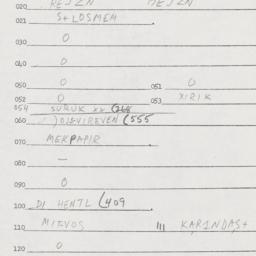 020 REJZN MEJZN
021 S+LOSMEM
030 0
040 0
050 0 051 0
052 0 053 XIRIK
054 SURUK xx
060 )OLEVIREVEN (555
070 MEKPAPIR
080 —
090 0
100 DI HENTL (409
110 MITVOS 111 KARINDAS+
120 0